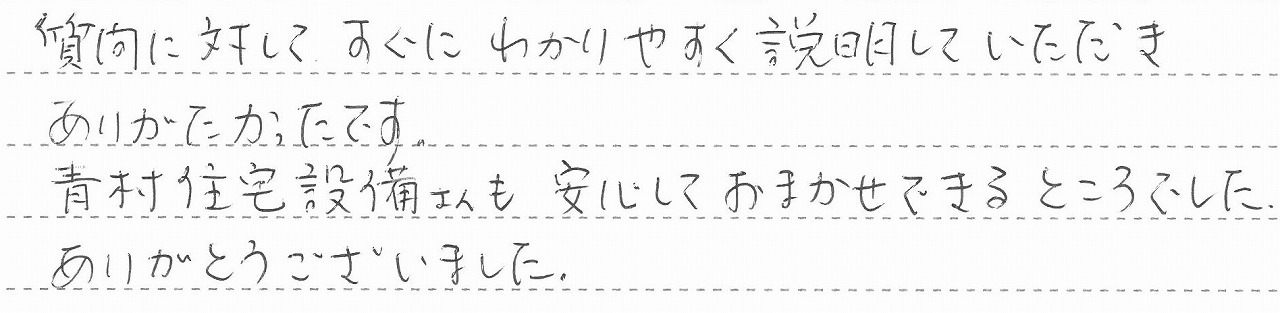 質問に対して すぐに わかりやすく説明していただき
ありがたかったです。
青村住宅設備さんも 安心しておまかせできるところでした.
ありがとうございました.